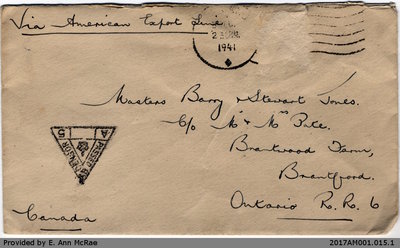 Via American Export Line
1941
Masters Barry & Stewart Jones.
C/o Mr & Mrs Pate.
Brantwood Farm,
Brantford.
Ontario R.R. 6
Canada
PASSED BY
CENSOR
A 5
Provided by E. Ann McRae
2017AM001.015.1